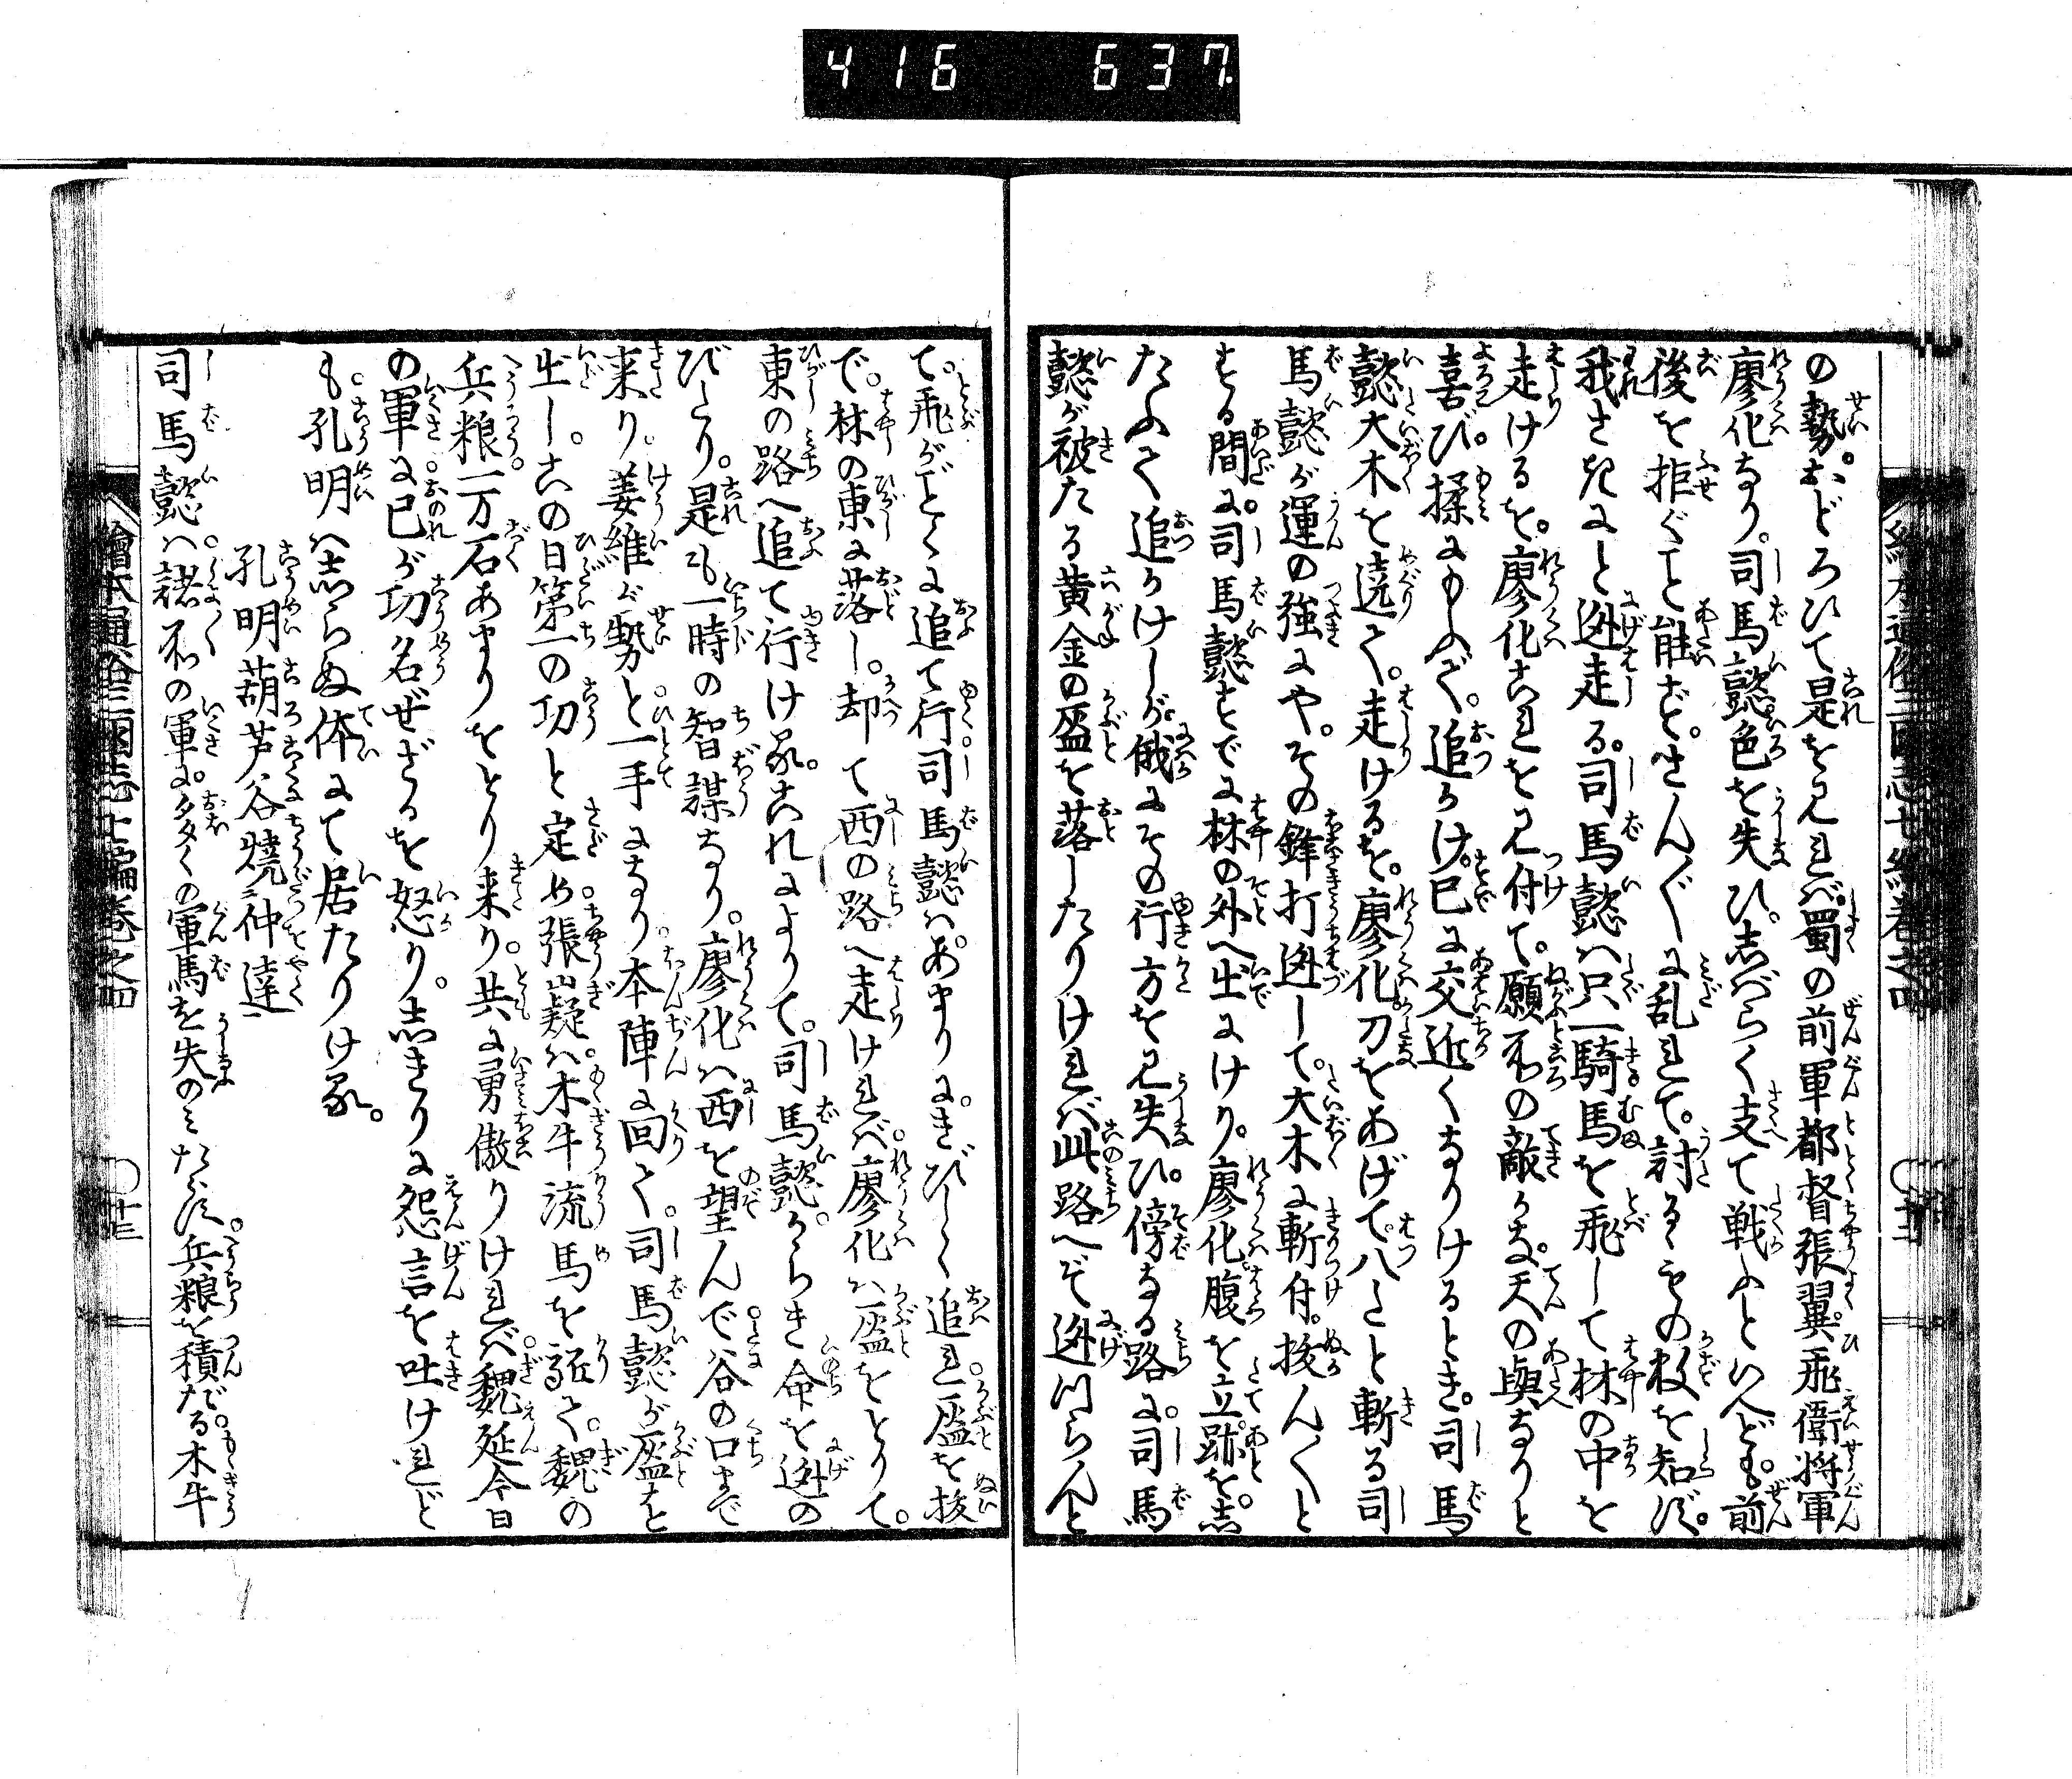 416 637
の勢。おどろひて是を見れば。蜀の前軍都督張翼。飛衛将軍
廖化なり。司馬懿色を失ひ。志ばらく支て戦ふといへども。前
後を拒ぐこと能ず。さん〴〵に乱れて。討るゝもの数を知ず。
我さきにと迯走る。司馬懿ハ只一騎。馬を飛して林の中を
走けるを。廖化これを見付て。願所の敵かな。天の與なりと
喜び。揉にもんで。追かけ。已に交近くなりけるとき。司馬
懿大木を遶て。走けるを。廖化刀をあげて。八たと斬る司
馬懿が運の強にや。その鋒打迯して。大木に斬付。抜ん〳〵と
する間に。司馬懿すでに林の外へ出にけり。廖化。腹を立。跡を。志
たふて追かけしが。俄にその行方を見失ひ。傍なる路に。司馬
懿が被たる黄金の盔を落したりければ。此路へぞ迯つらんと
て。飛がごとくに追て行。司馬懿ハ。あまりに。きびしく追れ。盔を抜
で。林の東に落し。却て西の路へ走ければ。廖化ハ盔をとりて。
東の路へ追て行ける。これによりて。司馬懿。からき命を迯の
びたり。是も一時の智謀なり。廖化ハ西を望んで。谷の口まで
来り。姜維が勢と。一手になり。本陣に回て。司馬懿が盔を
出し。この日第一の功と定め。張嶷ハ。木牛流馬を駈て。魏の
兵粮。一万石あまりをとり来り。共に勇傲りければ。魏延今日
の軍に。已が功名ぜざるを怒り。志きりに怨言を吐けれど
も。孔明ハ志らぬ体にて居たりける。
孔明葫芦谷燒二仲達一
司馬懿ハ。諸所の軍に。多くの軍馬を失のミたらず。兵粮を積だる。木牛
繪本通俗三國志七編巻之四